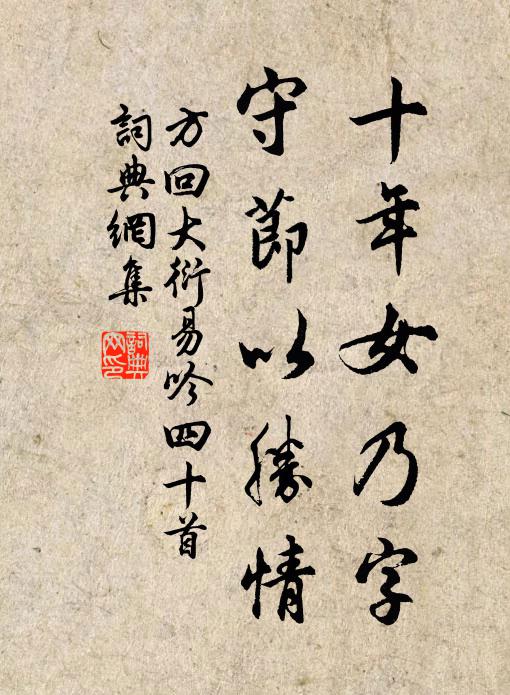 十年女乃字
守節以勝情
方回大衍易吟四十首
詞典網集
詞典网印